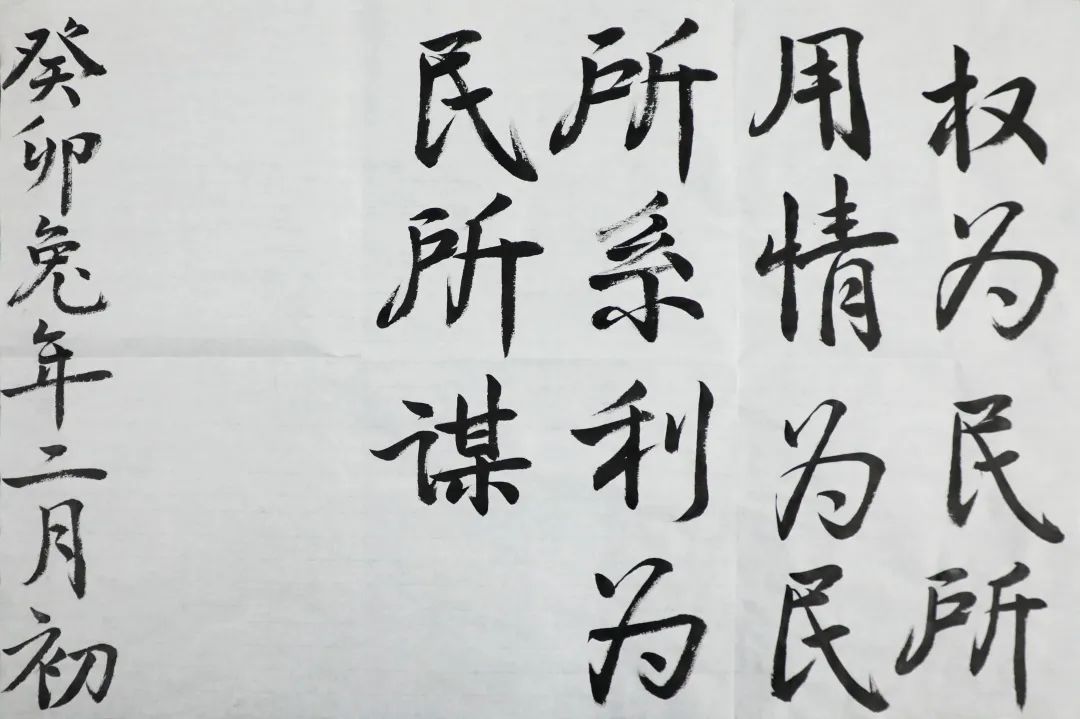 权为民所
用情为民
所系利为
民所谋
癸卯兔年二月初